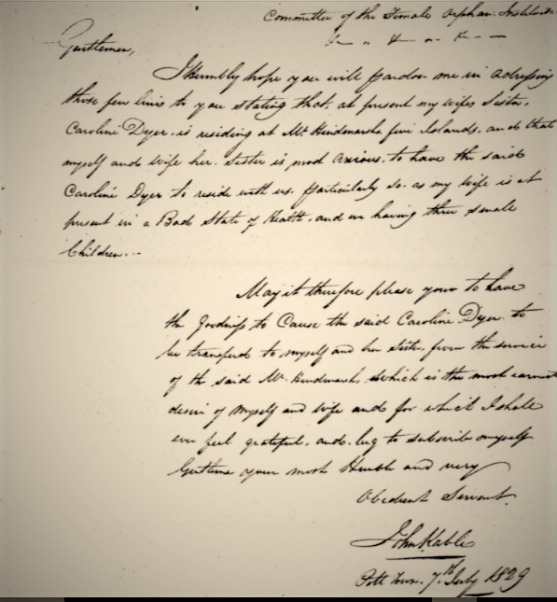 Committee of the Female Orphan Institut
Gentlemen,
I Humbly hope you will pardon me in adressing
those few lines to you stating that, at present my wifes Sister,
Caroline Dyer, is residing at Mr Hindmarsh five Islands, and that
myself and wife her Sister is most anxious, to have the said
Caroline Dyer to reside with us, particularly so as my wife is at
present in a Bad State of Health, and we having three small
Children..-
May it therefore please your to have
the Goodness to Cause the said Caroline Dyer to
be transferd to myself and her Sister, from the service
of the said Mr. Hindmarsh, which is the most earnest
desire of Myself and Wife and for which I shall
ever feel grateful, and beg to subscribe myself
Gentlemen your most Humble and very
Obedient Servant.
John Kable
Pitt Town. 7th July 1829